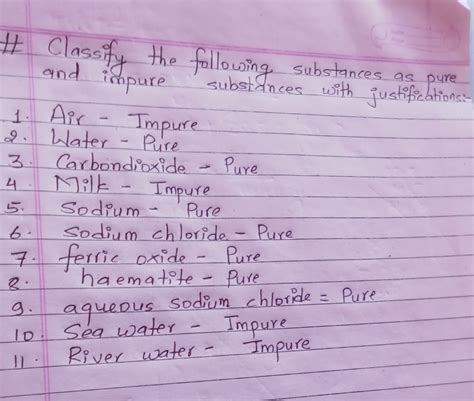 # Classify the following substances as pure
and impure substances with justifications:-
1. Air - Impure
2. Water - Pure
3. Carbondioxide - Pure
4. Milk - Impure
5. Sodium - Pure
6. Sodium chloride - Pure
7. ferric oxide - Pure
8. haematite - Pure
9. aqueous sodium chloride = Pure
10. Sea water - Impure
11. River water - Impure